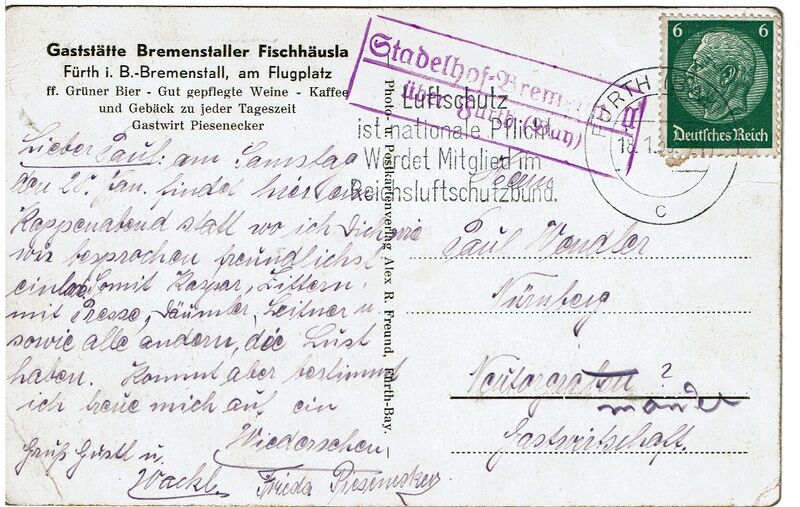 Gaststätte Bremenstaller Fischhäusla
Fürth i. B.-Bremenstall, am Flugplatz
ff. Grüner Bier - Gut gepflegte Weine - Kaffee
und Gebäck zu jeder Tageszeit
Gastwirt Piesenecker
Lieber Paul: am Samstag
den 28. Jan. findet hier ein
Kappenabend statt wo ich Dich wie
wir besprochen freundlichst
einlade somit Kaspar, Zittern,
mit Presse, Däumler, Leitner u.
sowie alle andern, die Lust
haben. Kommt aber bestimmt
ich freue mich auf ein
Wiedersehen
Gruß Gustl u.
Wackl. Frieda
Photo- u. Postkartenverlag Alex R. Freund, Fürth-Bay.
Stadelhof-Bremenstall
über Fürth (Bay)
Luftschutz
ist nationale Pflicht
Werdet Mitglied im
Reichsluftschutzbund.
FÜRTH
18.1.
c
6 6
Deutsches Reich
Herrn
Paul Wendler
Nürnberg
?
Gastwirtschaft.